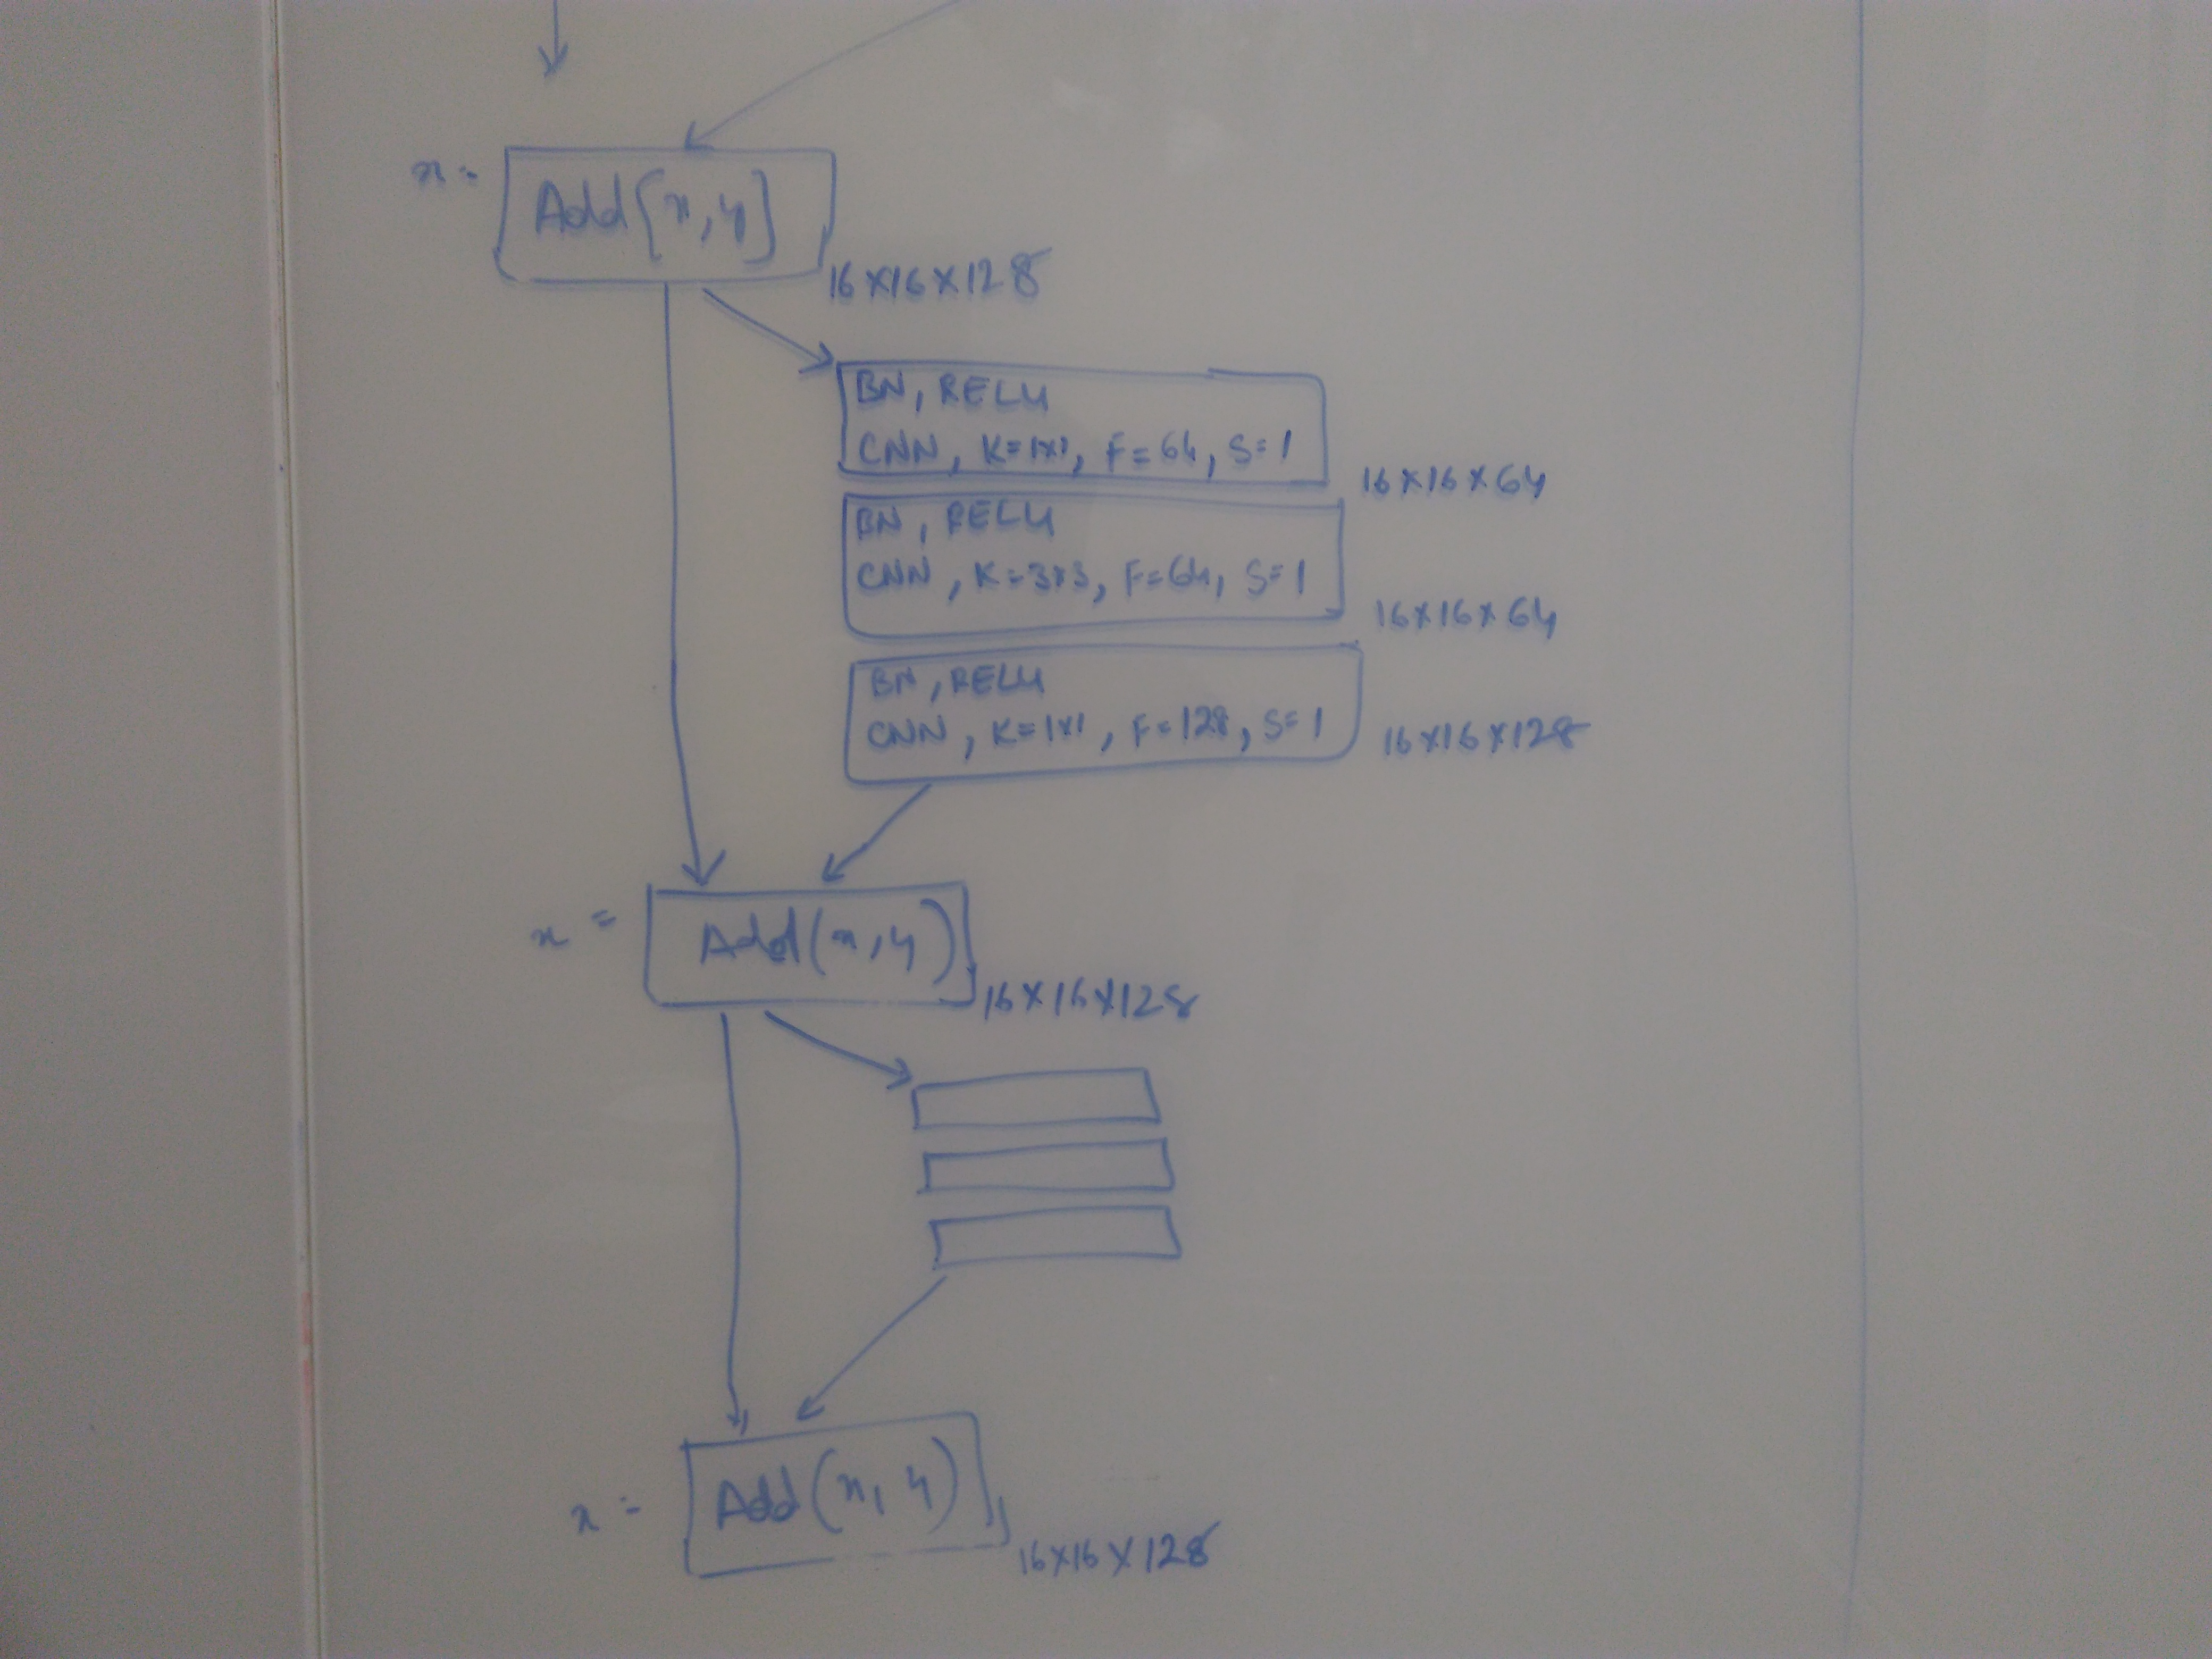 x =
Add[x, y]
16x16x128
BN, RELU
CNN, K=1x1, F=64, S=1
16x16x64
BN, RELU
CNN, K=3x3, F=64, S=1
16x16x64
BN, RELU
CNN, K=1x1, F=128, S=1
16x16x128
x =
Add(x, y)
16x16x128
x =
Add(x, y)
16x16x128